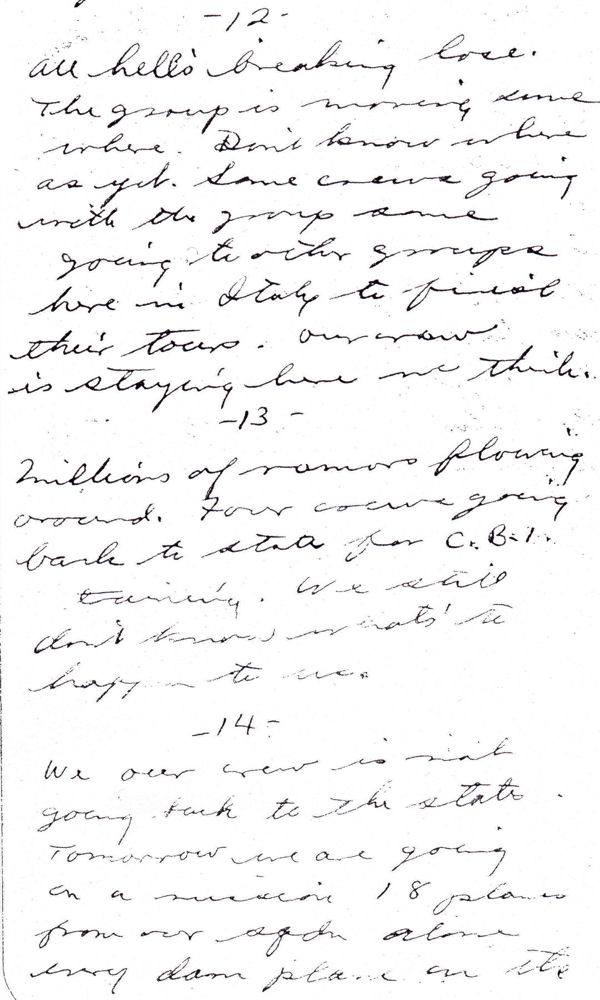 -12-
All hell's breaking lose.
The group is moving some
where. Don't know where
as yet. Some crews going
with the group some
going to other groups
here in Italy to finish
their tours. Our crew
is staying here we think.
-13-
Millions of rumors flowing
around. Four crews going
back to state for C.B.I.
training. We still
don't know whats' to
happen to us.
-14-
We our crew is not
going back to the states.
Tomorrow we are going
on a mission 18 planes
from our sqdn alone
every dam plane on the